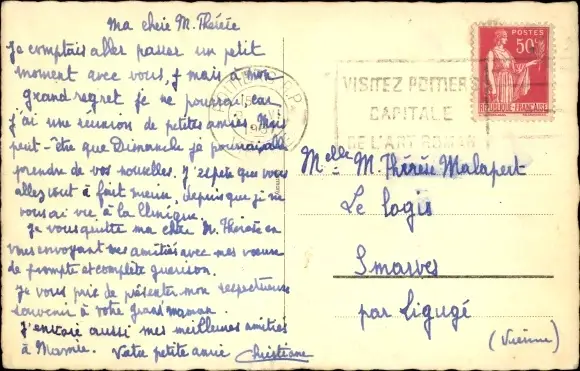 Ma chère M. Thérèse
Je comptais aller passer un petit
moment avec vous, mais à mon
grand regret je ne pourrai car
j'ai une réunion de petites amies. Mais
peut-être que Dimanche je pourrai aller
prendre de vos nouvelles. J'espère que vous
allez tout à fait mieux, depuis que je ne
vous ai vu, à la Clinique.
Je vous quitte ma chère M. Thérèse en
vous envoyant mes amitiés avec mes vœux
de prompte et complète guérison.
Je vous prie de présenter mon respectueux
souvenir à votre grand'maman.
J'envoie aussi mes meilleures amitiés
à Mamie. Votre petite amie Christiane
POITIERS
VISITEZ POITIERS
CAPITALE
DE L'ART ROMAN
POSTES
50c
REPUBLIQUE FRANÇAISE
Melle M. Thérèse Malapert
Le logis
Smarves
par Ligugé
(Vienne)